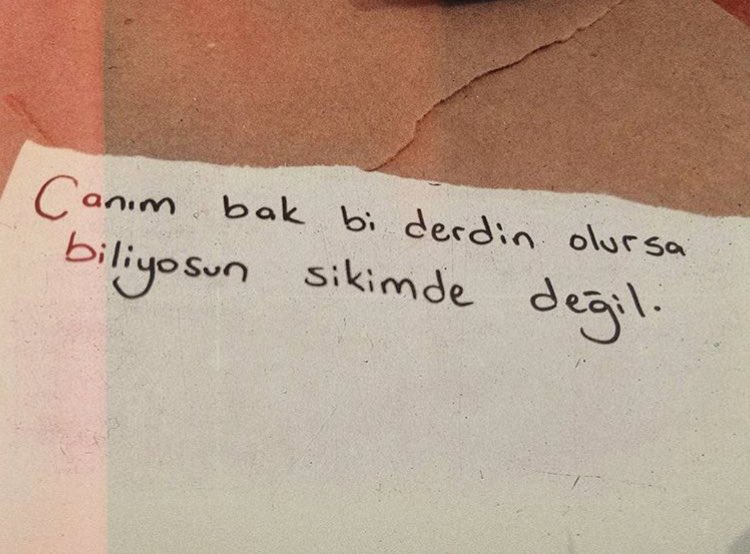 Canım bak bi derdin olursa
biliyosun sikimde değil.